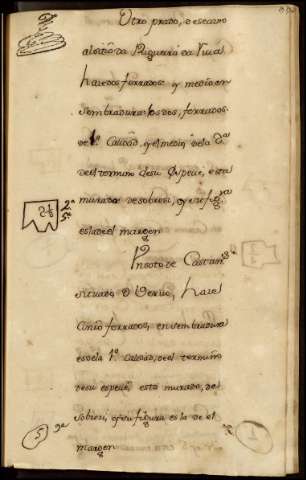 Otro prado, descavo
al sitio da Rigueira da Viña
haze dos ferrados y medio en
sembradura los dos, ferrados
de 1ª Calidad, y el medio de la 2ª
de el termino desu Especie, esta
murado de sobresi, y su figura
es la de el margen
2 1/2
2ª
5ª
Un soto de Castaños
situado O Devue, haze
Cinco ferrados, en sembradura
es de la 1ª Calidad, de el termino
de su especie esta murado, de
sobresi, y su figura es la de el
margen
5